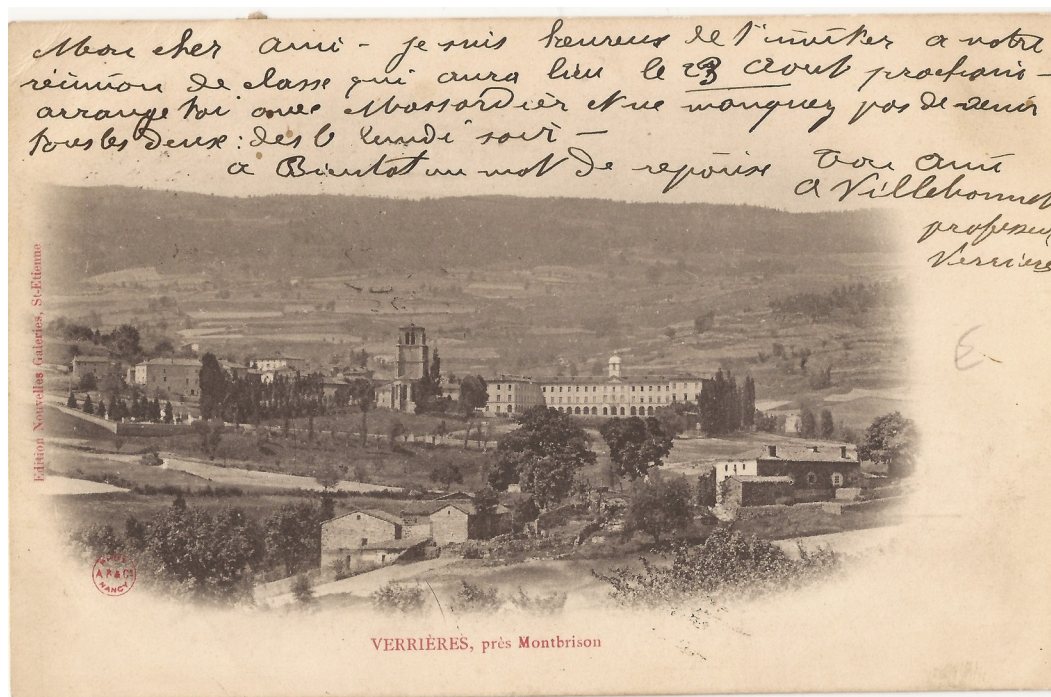 Mon cher ami - je suis heureux de t'inviter a notre
réunion de classe qui aura lieu le 23 Aout prochain -
arrange toi avec Massardier et ne manquez pas de venir
tous les deux : des le lundi soir -
a Bientot un mot de reponse Ton ami
A Villebonnet
professeur
Verrieres
Edition Nouvelles Galeries, St-Etienne
A.B & Cie
NANCY
VERRIÈRES, près Montbrison